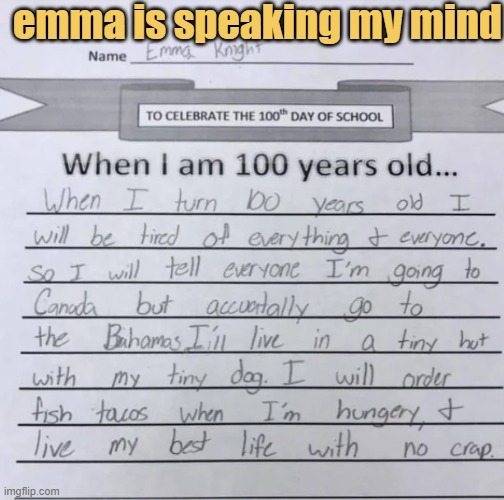 emma is speaking my mind
Name Emma Knight
TO CELEBRATE THE 100th DAY OF SCHOOL
When I am 100 years old...
When I turn 100 years old I
will be tired of everything & everyone.
So I will tell everyone I'm going to
Canada but accuatally go to
the Bahamas. I'ill live in a tiny hut
with my tiny dog. I will order
fish tacos when I'm hungery, &
live my best life with no crap.
imgflip.com